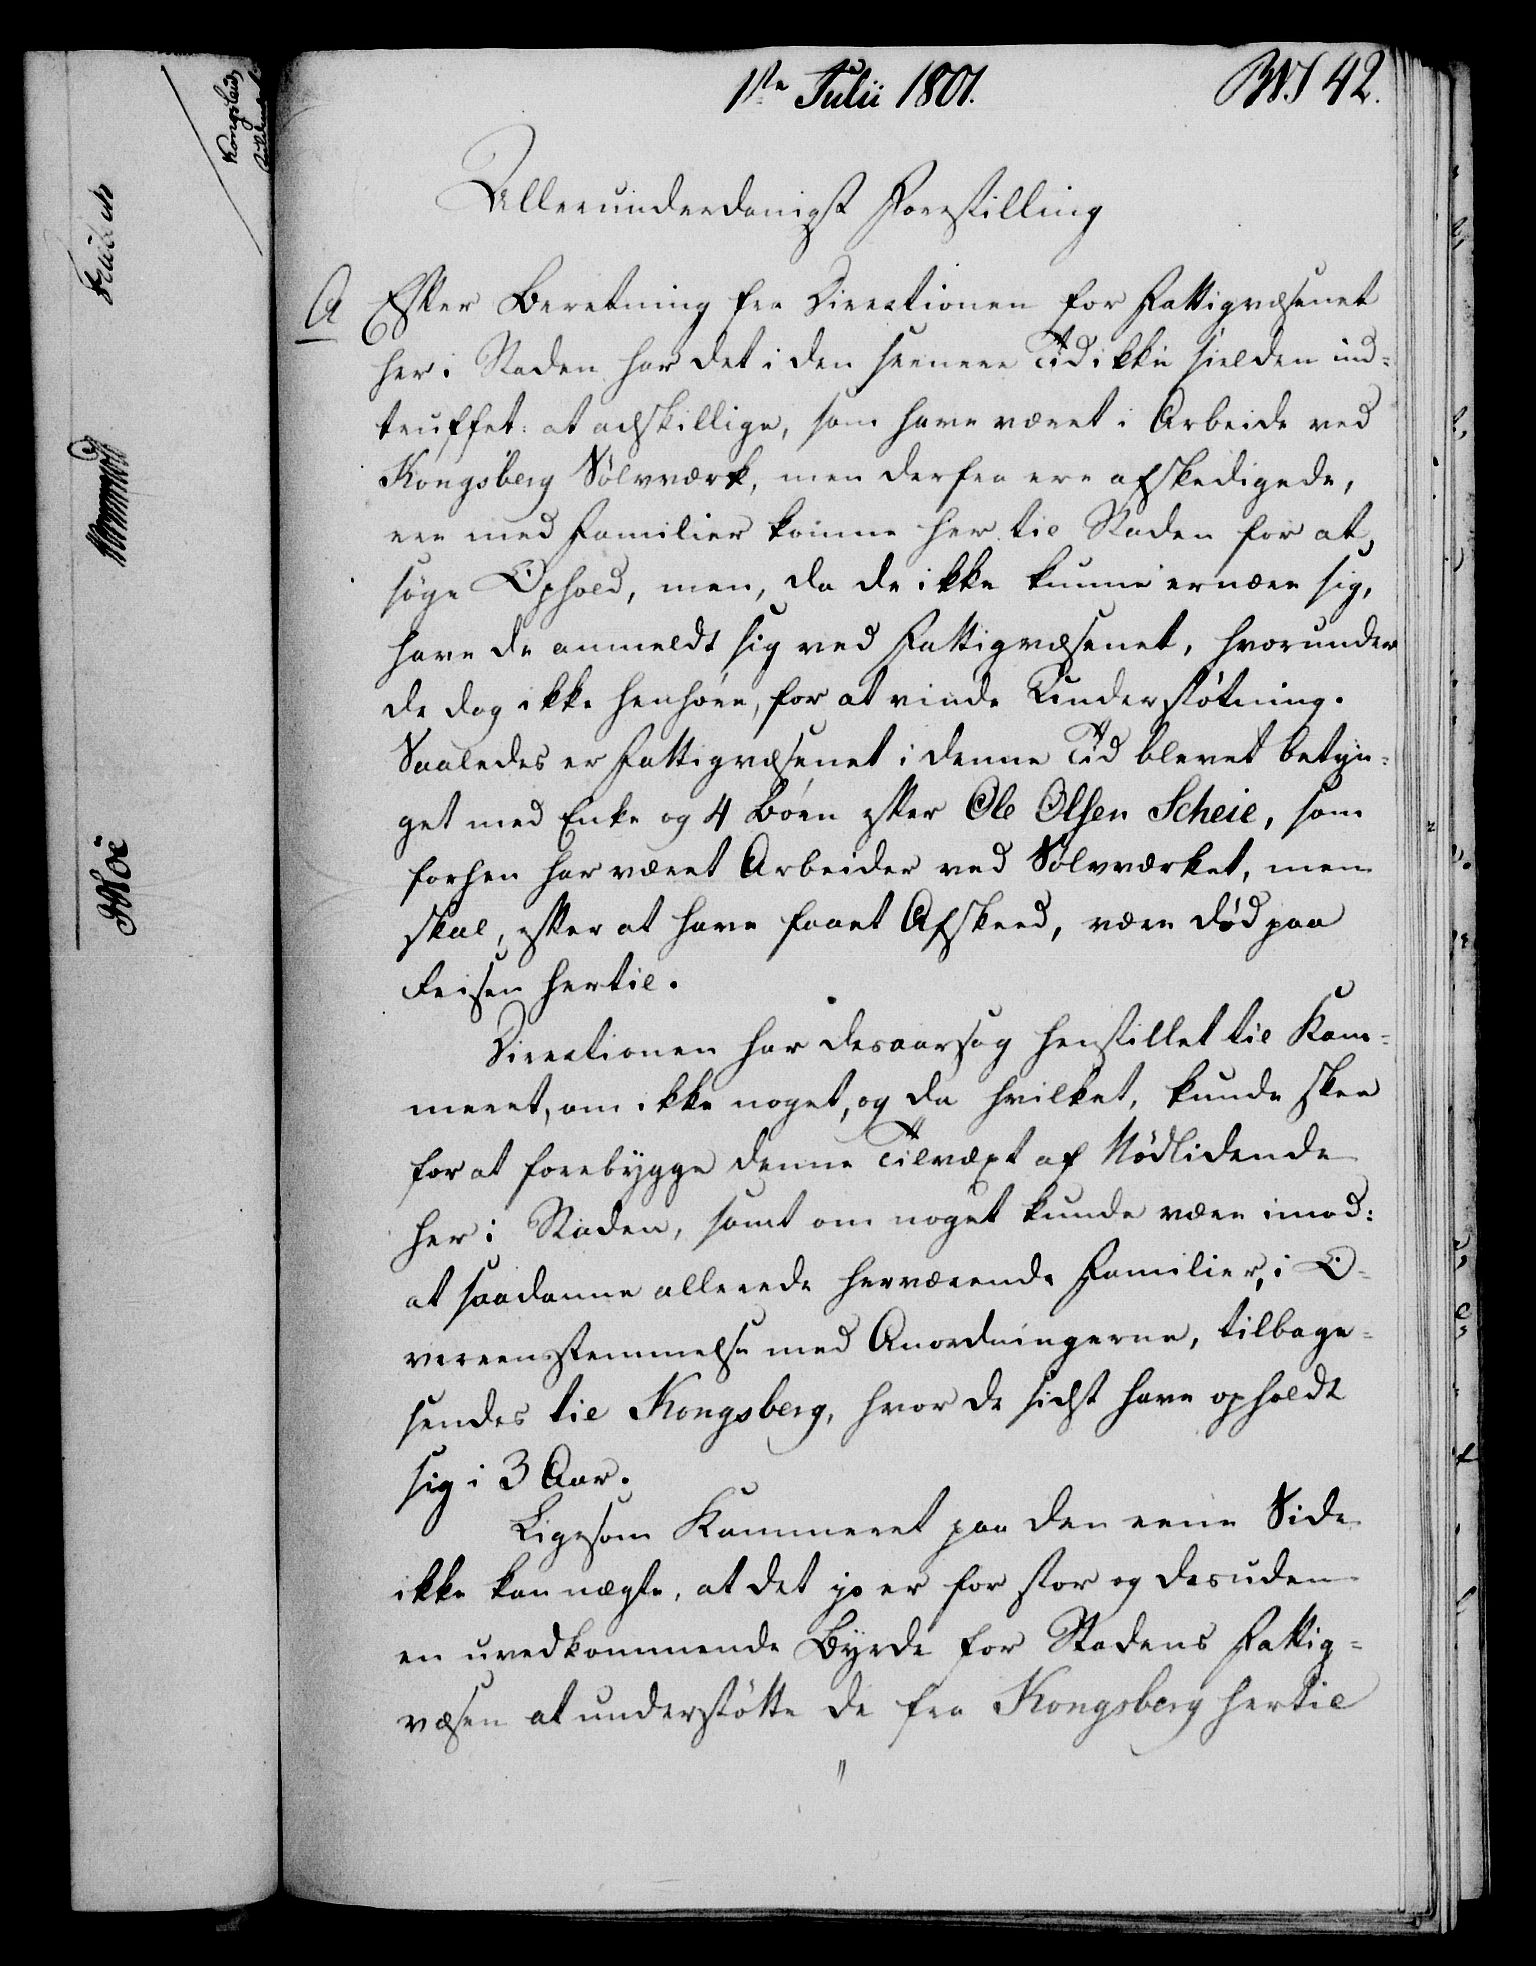 1ste Julii 1801.
42.
Allerunderdanigst Forestilling
A
Efter Beretning fra Directionen for Fattigvæsenet
her i Staden har det i den seenere Tid ikke sielden ind-
truffet: at adskillige, som have været i Arbeide ved
Kongsberg Sølvværk, men derfra ere afskedigede,
ere med Familier komne her til Staden for at
søge Ophold, men, da de ikke kunne ernære sig,
have de anmeldt sig ved Fattigvæsenet, hvorunder
de dog ikke henhøre, for at vinde Understøtning.
Saaledes er Fattigvæsenet i denne Tid blevet betyn-
get med Enke og 4 Børn efter Ole Olsen Scheie, som
forhen har været Arbeider ved Sølvværket, men
skal, efter at have faaet Afskeed, være død paa
Reisen hertil.
Directionen har desaarsag henstillet til Kam-
meret, om ikke noget, og da hvilket, kunde skee
for at forebygge denne Tilvæxt af Nødlidende
her i Staden, samt om noget kunde være imod:
at saadanne allerede herværende Familier, i O-
vereensstemmelse med Anordningerne, tilbage-
sendes til Kongsberg, hvor de sidst have opholdt
sig i 3 Aar.
Ligesom Kammeret paa den eene Side
ikke kan nægte, at det jo er for stor og desuden
en uvedkommende Byrde for Stadens Fattig-
væsen at understøtte de fra Kongsberg hertil